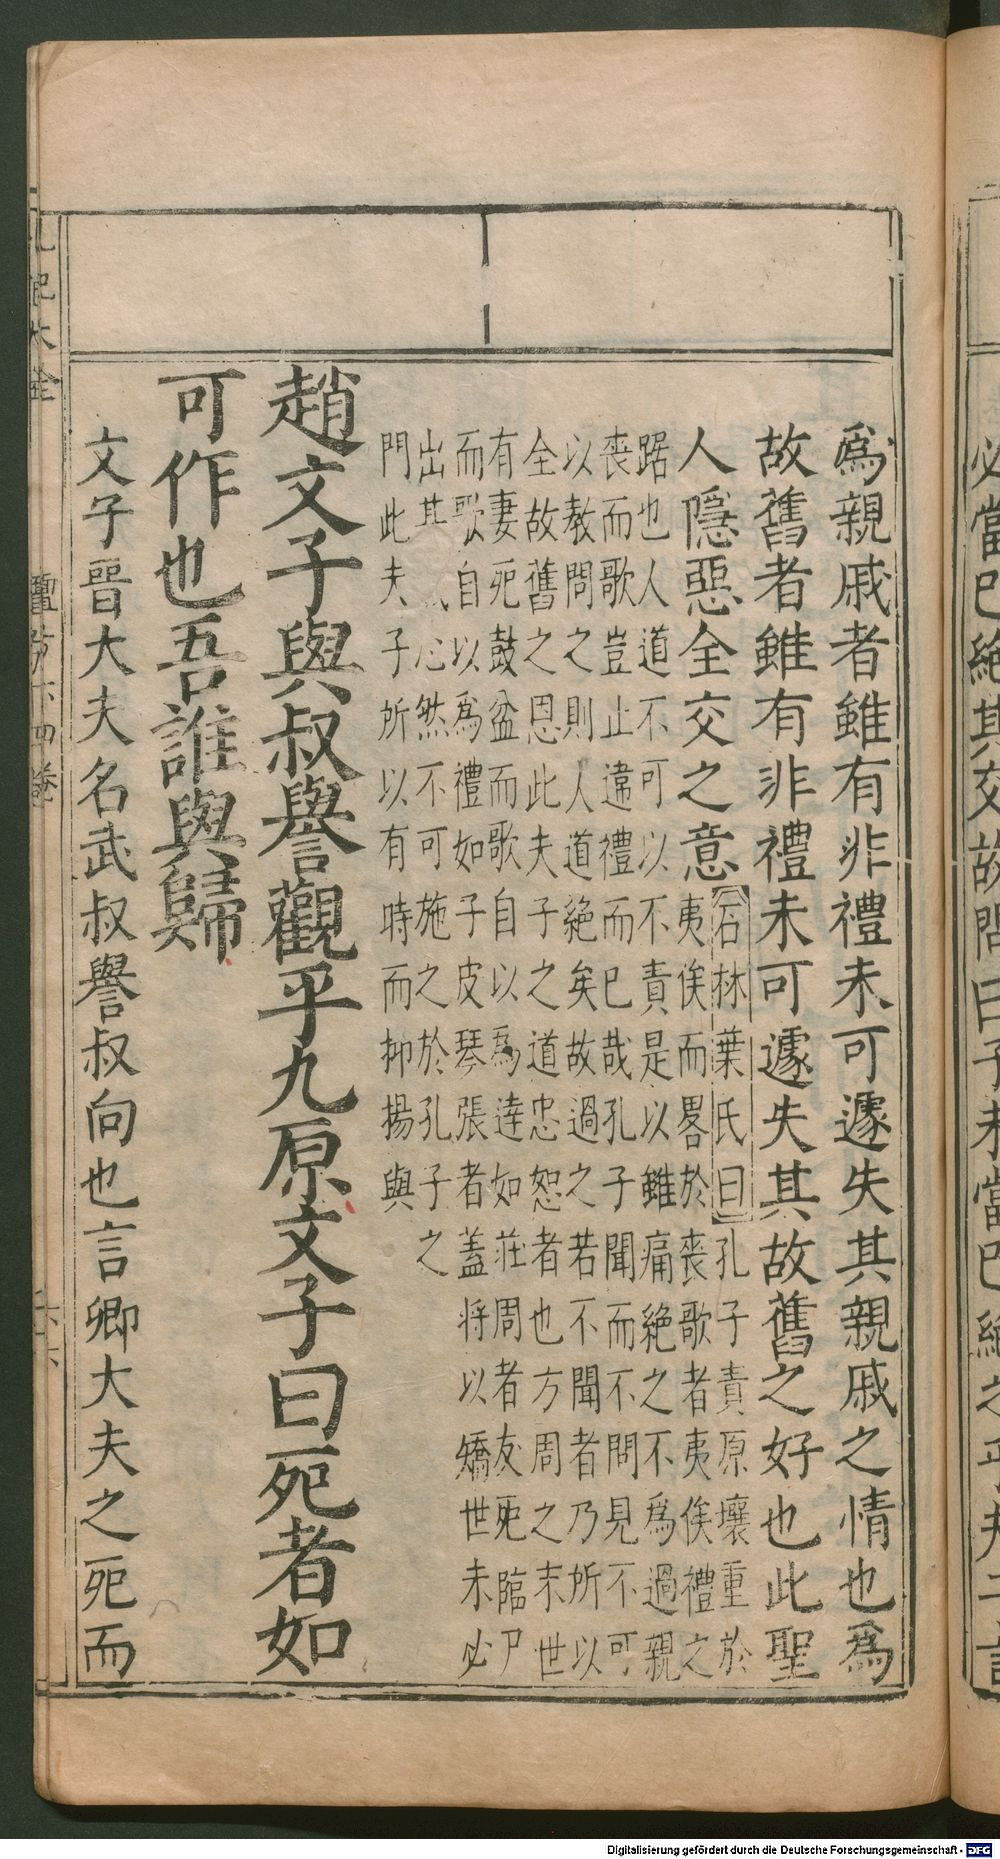 必當巳絶其交故問曰子未當巳絶之
爲親戚者雖有非禮未可遽失其親戚之情也爲
故舊者雖有非禮未可遽失其故舊之好也此聖
人隱惡全交之意
石林葉氏曰孔子責原壤重於
夷俟而畧於喪歌者夷俟禮之
踞也人道不可以不責是以雖痛絶之不爲過親
喪而歌豈止違禮而巳哉孔子聞而不問見不可
以教問之則人道絶矣故過之若不聞者乃所以
全故舊之恩此夫子之道忠恕者也方周之末世
有妻死鼓盆而歌自以爲達如莊周者友死臨尸
而歌自以爲禮如子皮琴張者蓋將以矯世未必
出其心然不可施之於孔子之
門此夫子所以有時而抑揚與
趙文子與叔譽觀乎九原文子曰死者如
可作也吾誰與歸
文子晉大夫名武叔譽叔向也言卿大夫之死而
禮記大全
檀弓下四卷
Digitalisierung gefördert durch die Deutsche Forschungsgemeinschaft - DFG